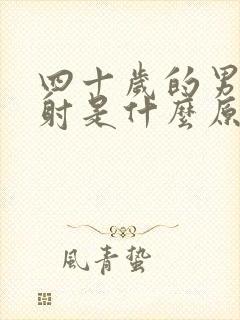 四十歲的男
射是什麼原
風青蟄